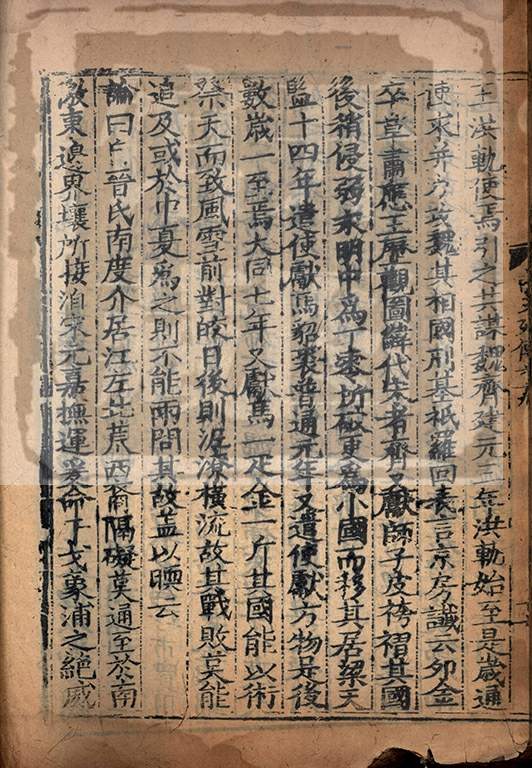 王洪軌使焉引之共謀魏齊建元三年洪軌始至是歲通
使求并力攻魏其相國刑基祇羅回表言京房讖云卯金
卒草肅應王歷觀圖緯代宋者齊又獻師子皮袴褶其國
後稍侵弱永明中爲丁零所破更爲小國而移其居梁天
監十四年遣使獻馬貂裘普通元年又遣使獻方物是後
數歲一至焉大同七年又獻馬一疋金一斤其國能以術
祭天而致風雪前對皎日後則泥潦橫流故其戰敗莫能
追及或於中夏爲之則不能雨問其故蓋以暎云
論曰自晉氏南度介居江左北荒西裔隔礙莫通至於南
徼東邊界壤所接洎宋元嘉撫運爰命干戈象浦之絶威